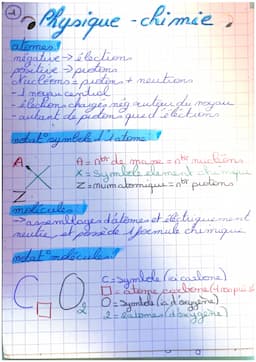 1
Physique - chimie
atomes:
négative → électrons
positive → protons
nucléons = protons + neutrons
- 1 noyau central
- électrons chargés nég autour du noyau
- autant de protons que d'électrons
notat° symbole d'1 atome
A
X
Z
A = nbr de masse = nbr nucléons
X = symbole élément chimique
Z = num atomique = nbr protons
molécules
→ assemblages d'atomes et électriquement
neutre, et possède 1 formule chimique
notat° molécules
C□O₂
C = symbole (ici carbone)
□ = atome carbone
O = symbole (ici d'oxygène)
2 = 2 atomes (d'oxygène)